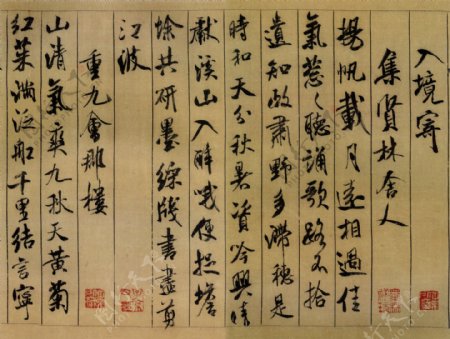 入境寄
集賢林舍人
揚帆載月遠相過佳
氣蔥〻聽誦歌路不拾
遺知政肅野多滯穗是
時和天分秋暑資吟興晴
獻溪山入醉哦便捉蟾
蜍共研墨綵牋書盡剪
江波
重九會郡樓
山清氣爽九秋天黃菊
紅茱滿泛船千里結言寧